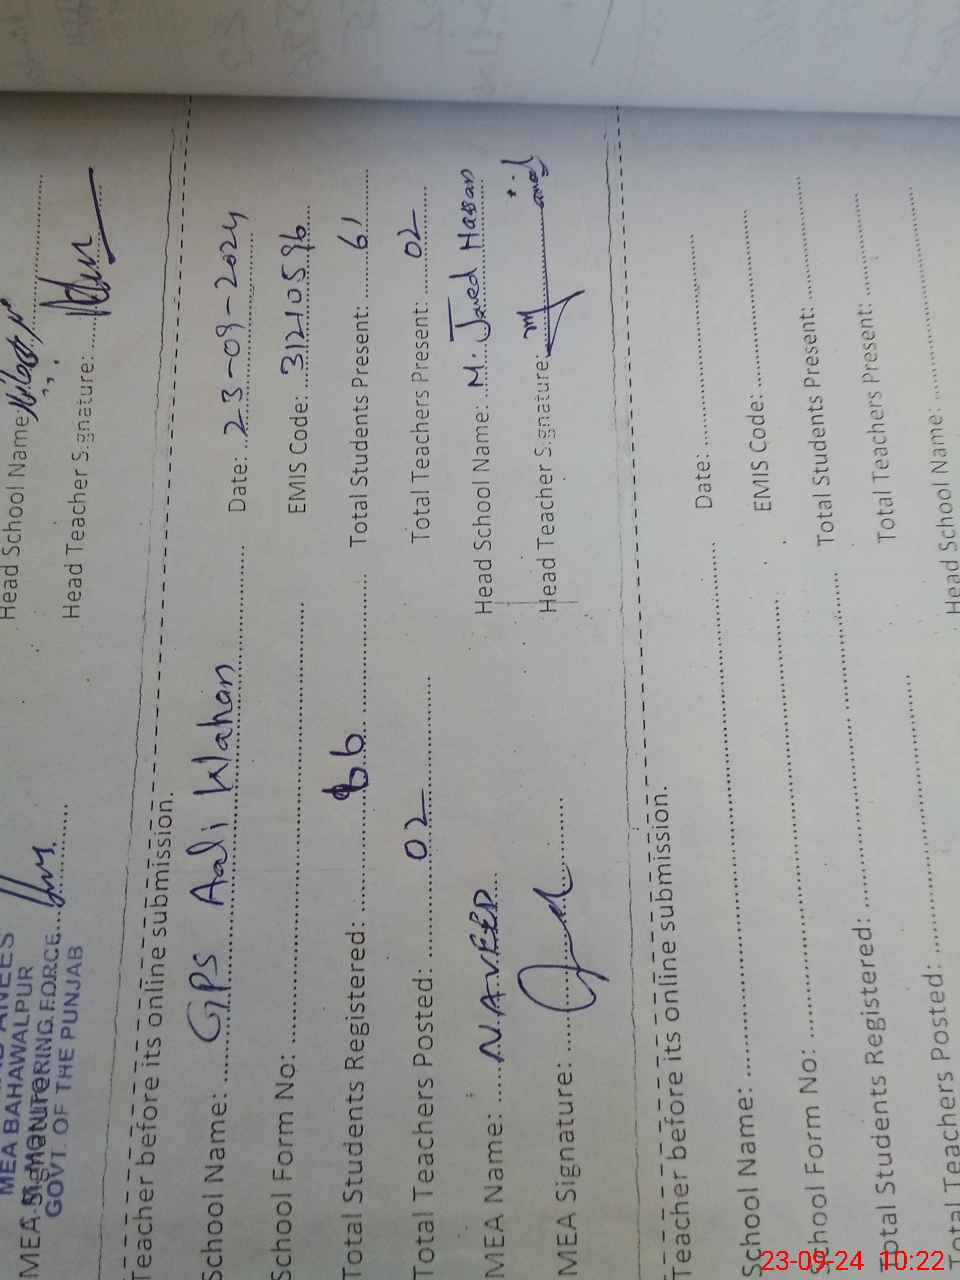 Head School Name:
MEA BAHAWALPUR
MEA Signature
MONITORING FORCE
GOVT. OF THE PUNJAB
Head Teacher Signature:
Teacher before its online submission.
School Name: GPS Aali Wahan Date: 23-09-2024
School Form No: EMIS Code: 31210596
Total Students Registered: 66 Total Students Present: 61
Total Teachers Posted: 02 Total Teachers Present: 02
MEA Name: NAVEED Head School Name: M. Javed Hassan
MEA Signature: Head Teacher Signature:
Teacher before its online submission.
School Name: Date:
School Form No: EMIS Code:
Total Students Registered: Total Students Present:
Total Teachers Posted: Total Teachers Present:
Head School Name:
23-09-24 10:22